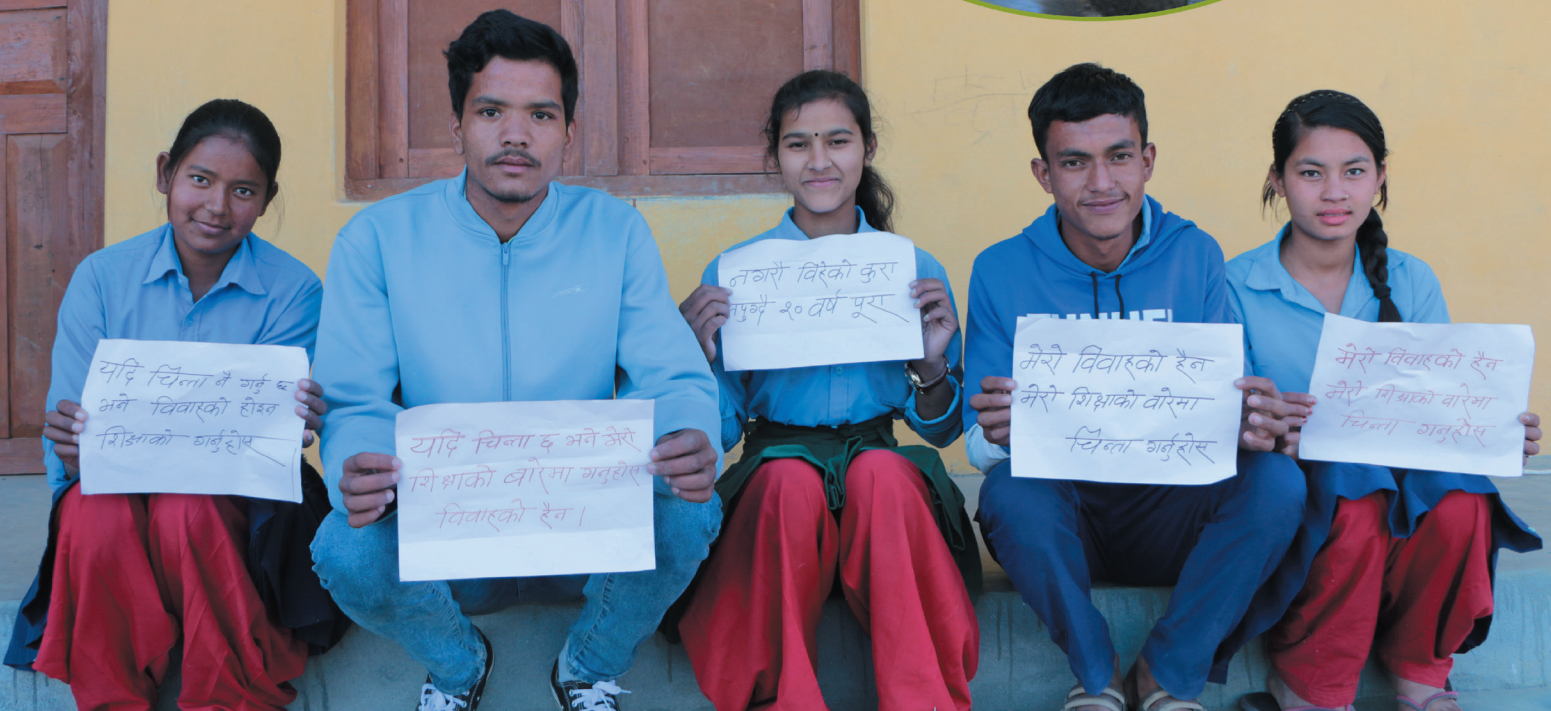 यदि चिन्ता नै गर्नु छ
भने विवाहको होइन
शिक्षाको गर्नुहोस्
यदि चिन्ता छ भने मेरो
शिक्षाको बारेमा गनुहोस
विवाहको हैन ।
नगरौ विहेको कुरा
नपुग्दै २० वर्ष पूरा
मेरो विवाहको हैन
मेरो शिक्षाको वारेमा
चिन्ता गर्नुहोस्
मेरो विवाहको हैन
मेरो शिक्षाको वारेमा
चिन्ता गनुहोस्